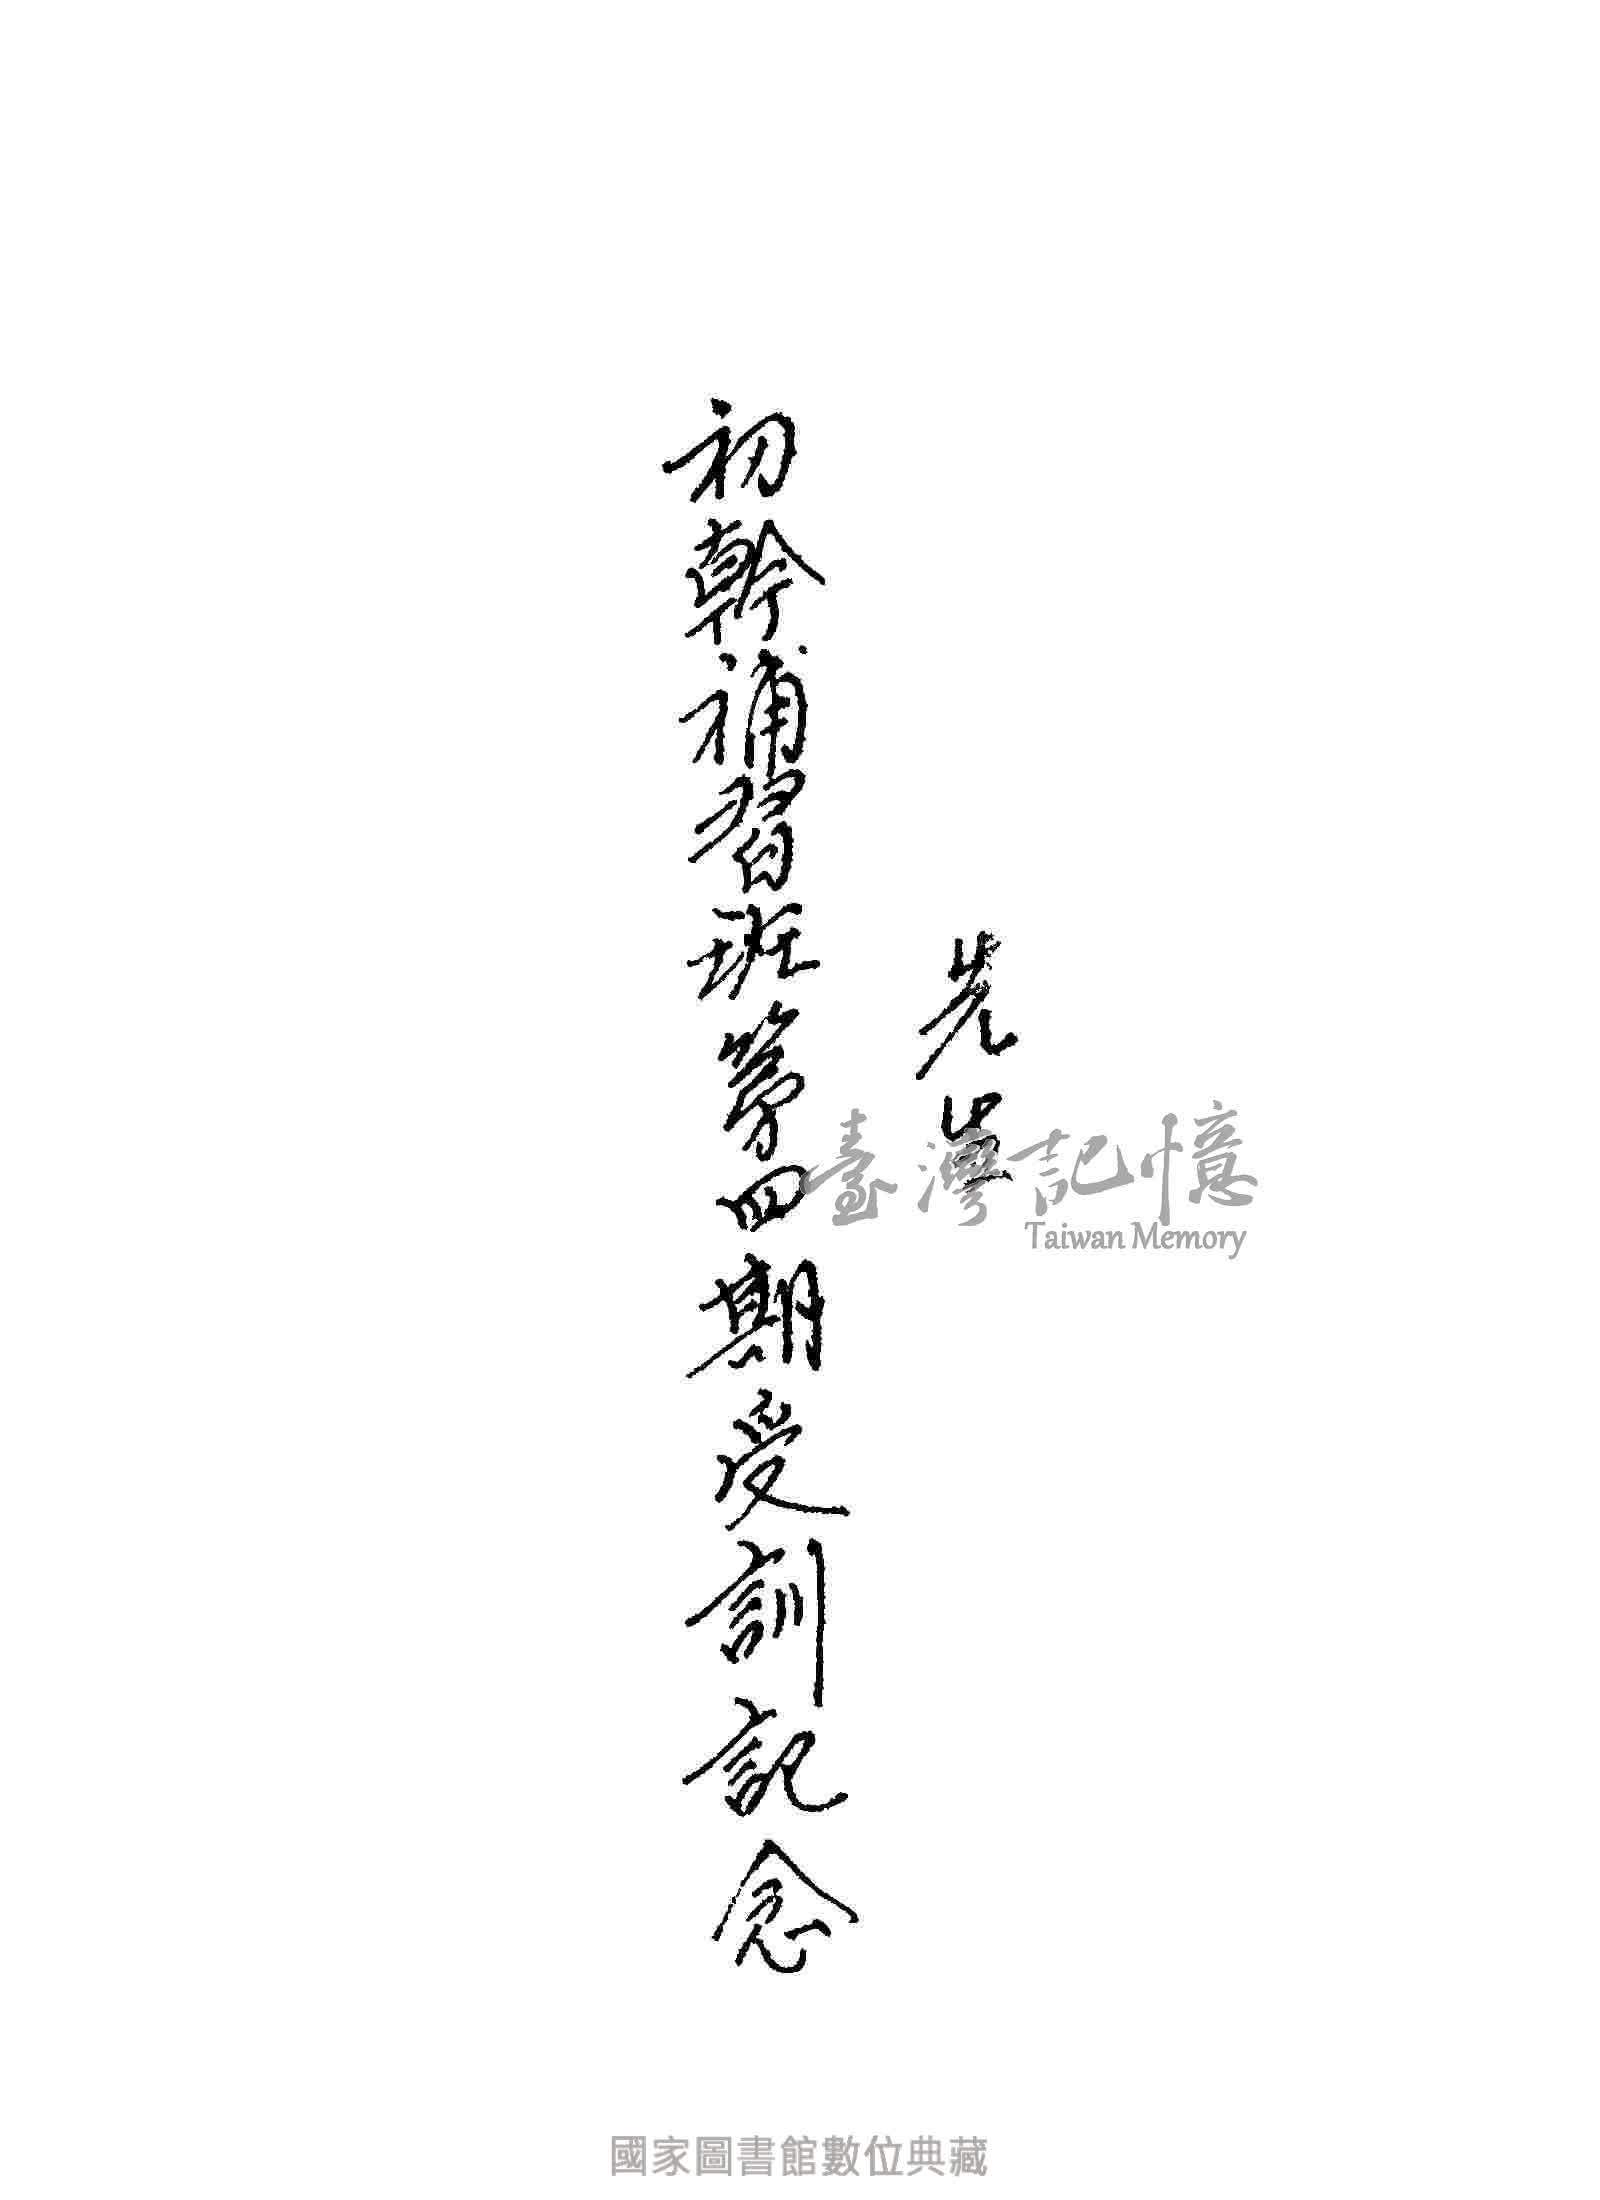 先生
初幹補習班第四期受訓記念
臺灣記憶
Taiwan Memory
國家圖書館數位典藏